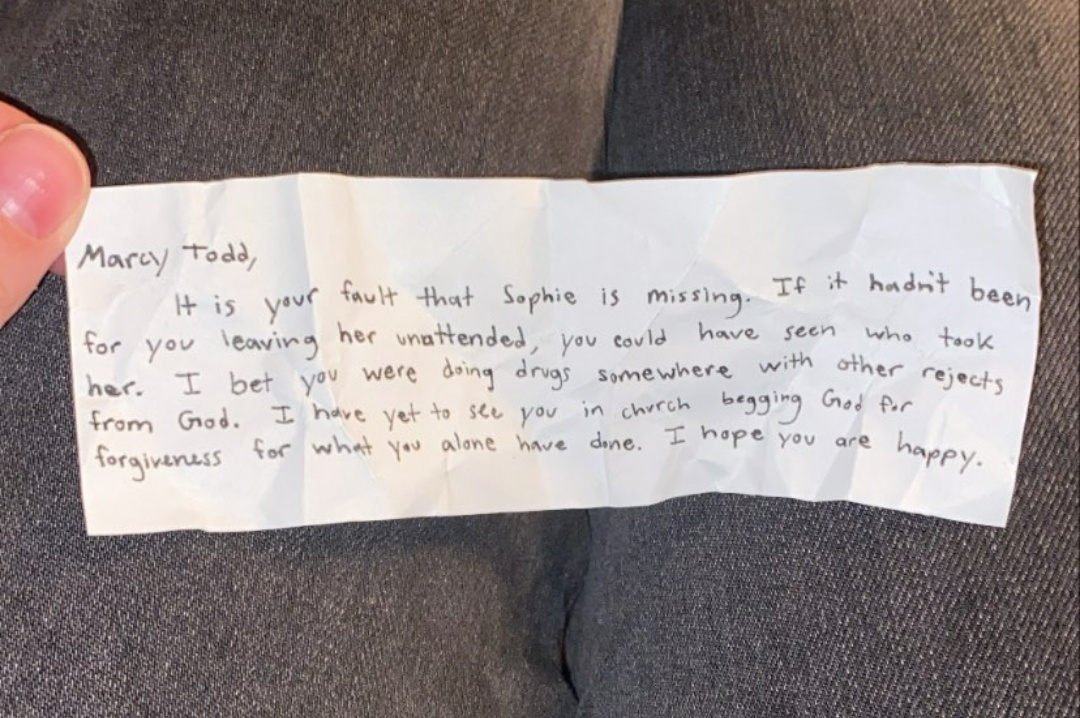 Marcy Todd,
It is your fault that Sophie is missing. If it hadn't been
for you leaving her unattended, you could have seen who took
her. I bet you were doing drugs somewhere with other rejects
from God. I have yet to see you in church begging God for
forgiveness for what you alone have done. I hope you are happy.